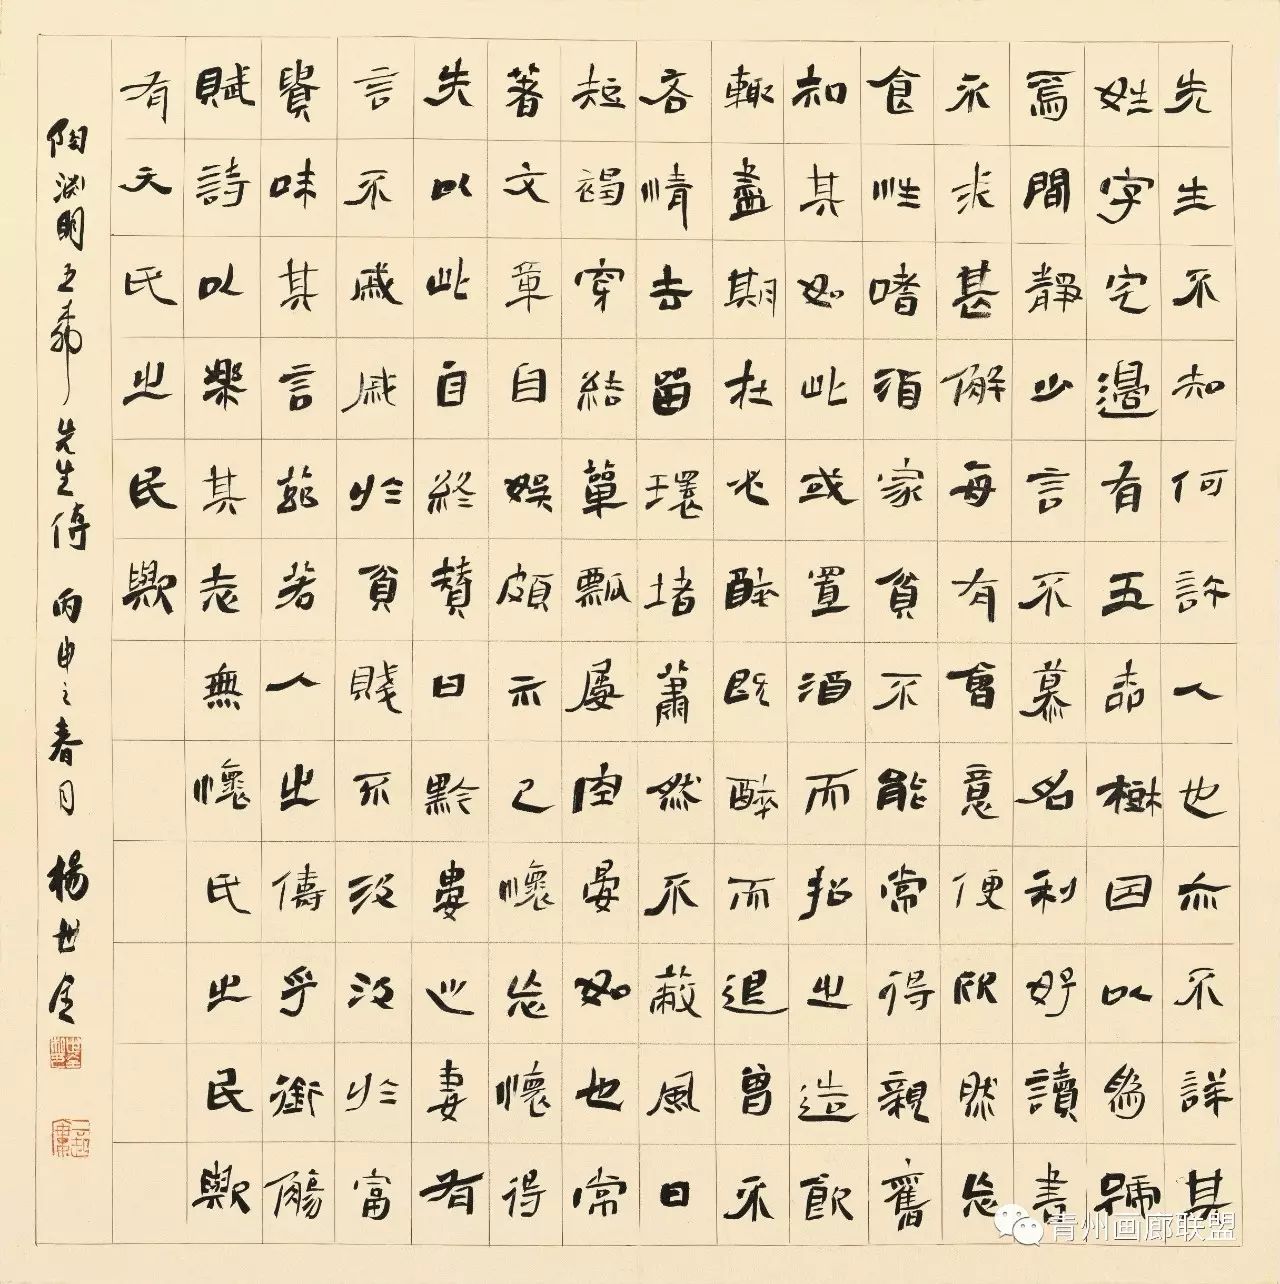 先生不知何許人也亦不詳其
姓字宅邊有五柳樹因以為號
焉閒靜少言不慕名利好讀書
不求甚解每有會意便欣然忘
食性嗜酒家貧不能常得親舊
知其如此或置酒而招之造飲
輒盡期在必醉既醉而退曾不
吝情去留環堵蕭然不蔽風日
短褐穿結簞瓢屢空晏如也常
著文章自娛頗示己懷忘懷得
失以此自終贊曰黔婁之妻有
言不戚戚於貧賤不汲汲於富
貴味其言茲若人之儔乎銜觴
賦詩以樂其志無懷氏之民歟
有天氏之民歟
陶淵明五柳先生傳 丙申之春月 楊世
青州画廊联盟